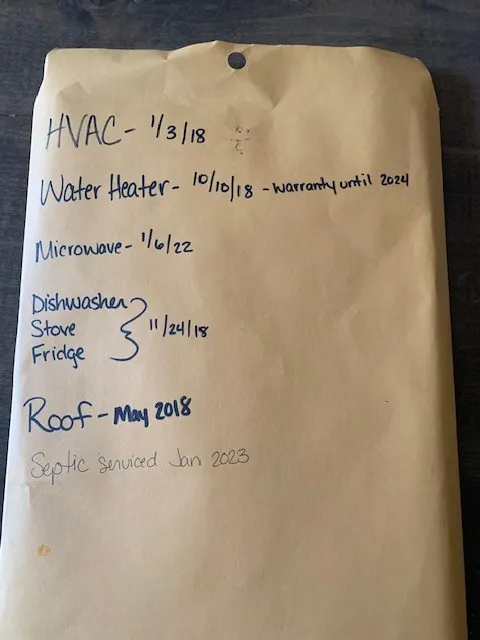 HVAC - 1/3/18
Water Heater - 10/10/18 - warranty until 2024
Microwave - 1/6/22
Dishwasher
Stove
Fridge
11/24/18
Roof - May 2018
Septic serviced Jan 2023